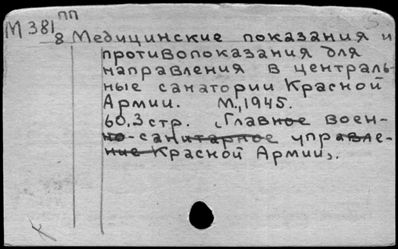 пп
М 381
8 Медицинские показания и
противопоказания для
направления в централь-
ные санатории Красной
Армии. М., 1945.
60,3 стр. (Главное воен-
но-санитарное управле-
ние Красной Армии).